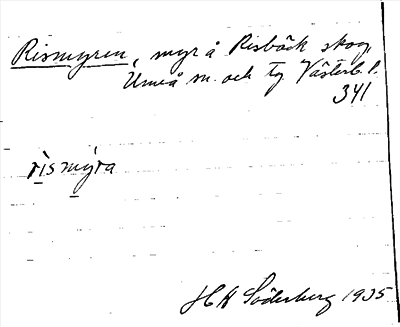 Rismyren, myr å Risbäck skog,
Umeå sn. och tg Västerb. l.
341
rismyra
HK Söderberg 1935